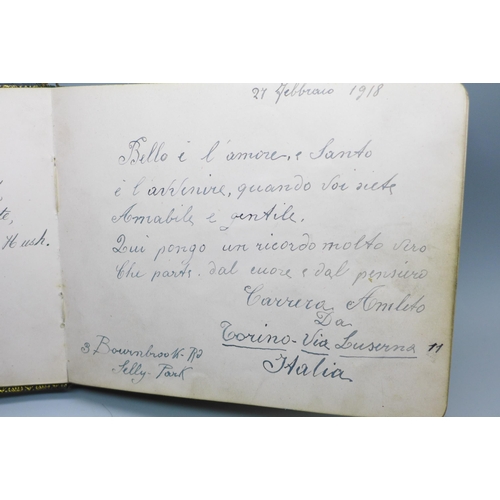 27 Febbraio 1918
Bello è l'amore, e Santo
è l'avvenire, quando voi siete
Amabile e gentile.
Qui pongo un ricordo molto vero
Che parte dal cuore e dal pensiero
Carrera Amleto
Da
Torino - Via Luserna 11
Italia
3 Bournbrook Rd
Selly Park
te,
Hush.